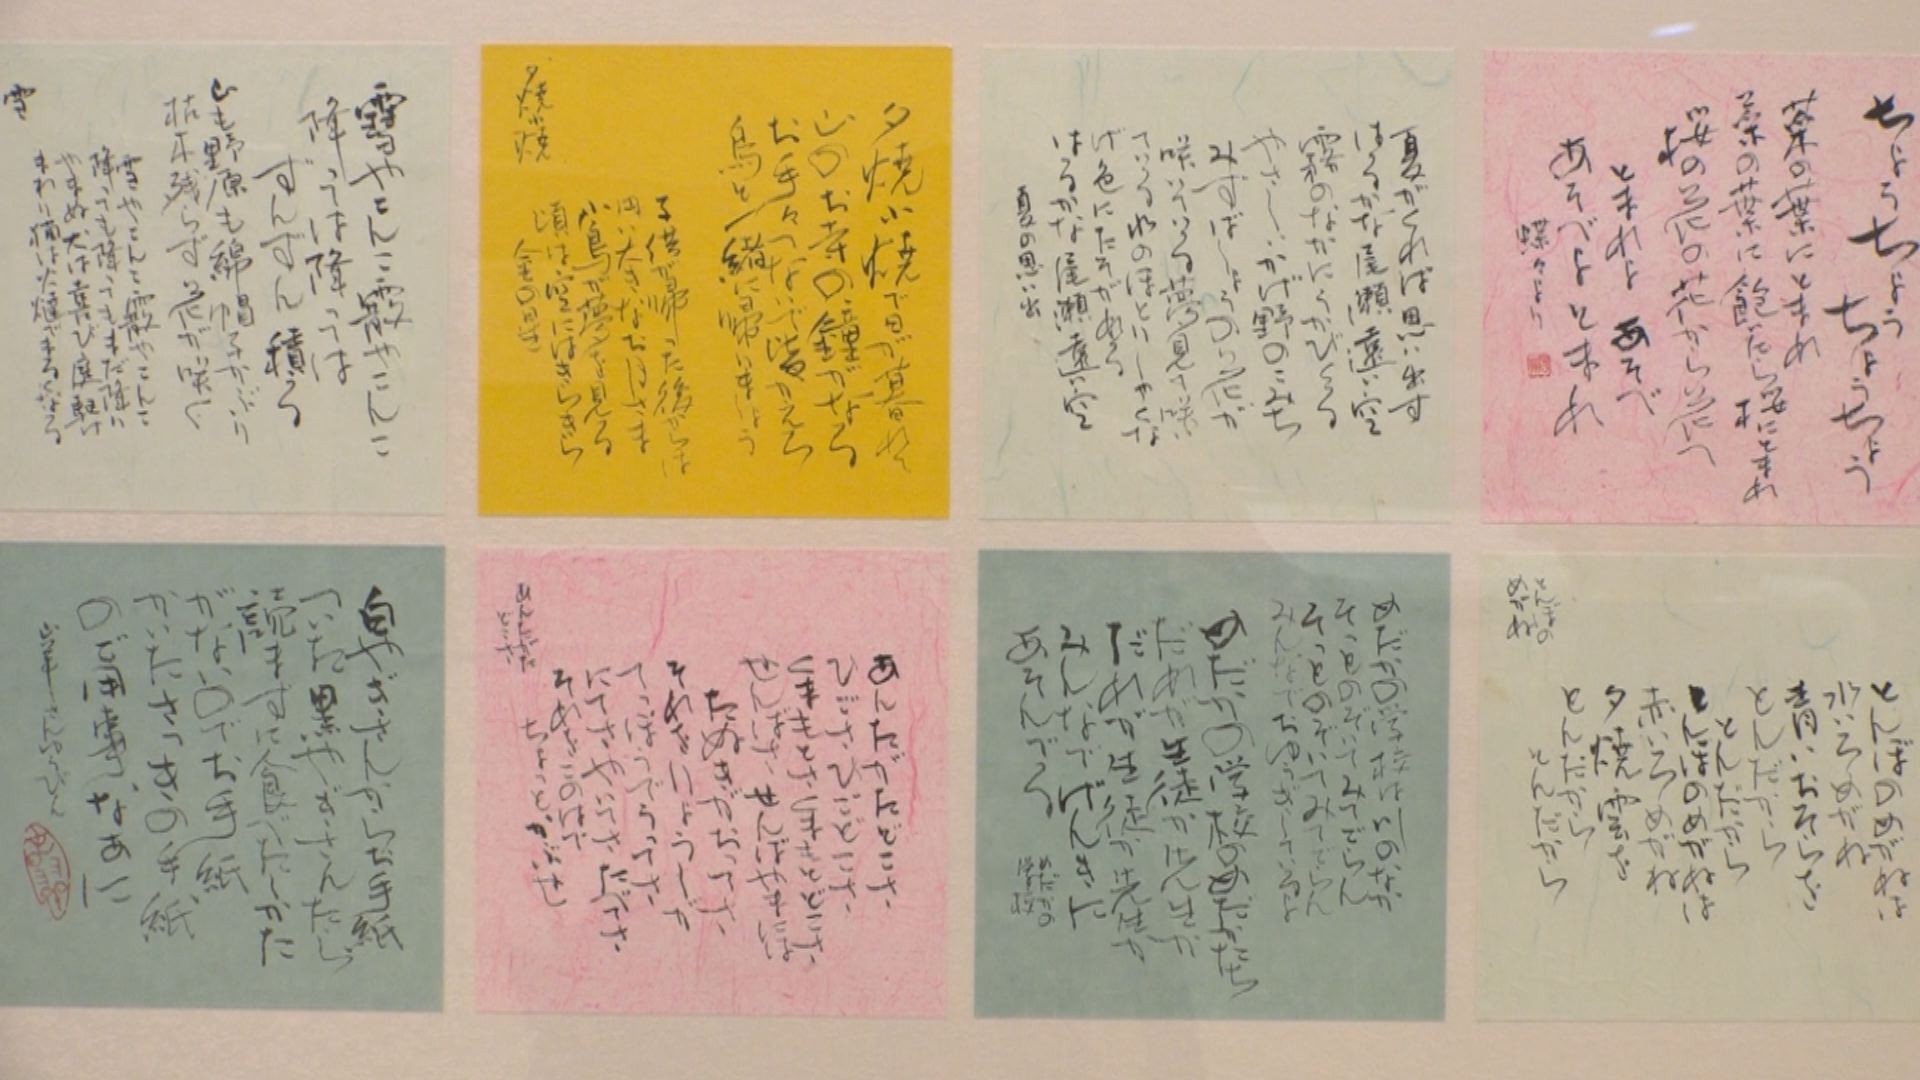 雪やこんこ霰やこんこ
降っては降っては
ずんずん積る
山も野原も綿帽子かぶり
枯木残らず花が咲く
雪やこんこ霰やこんこ
降っても降ってもまだ降り
やまぬ犬は喜び庭駆け
まわり猫は火燵でまるくなる
雪
夕焼小焼で日が暮れて
山のお寺の鐘がなる
お手々つないで皆かえろ
烏と一緒に帰りましょう
子供が帰った後からは
円い大きなお月さま
小鳥が夢を見る
頃は空にはきらきら
金の星
夕焼小焼
夏がくれば思い出す
はるかな尾瀬遠い空
霧のなかにうかびくる
やさしいかげ野のこみち
みずばしょうの花が
咲いている夢見て咲い
ている水のほとりしゃくな
げ色にたそがれる
はるかな尾瀬遠い空
夏の思い出
ちょうちょう
ちょうちょう
菜の葉にとまれ
菜の葉に飽いたら桜にとまれ
桜の花の花から花へ
とまれよあそべ
あそべよとまれ
蝶々より
白やぎさんからお手紙
ついた黒やぎさんたら
読まずに食べたしかた
がないのでお手紙
かいたさっきの手紙
のご用事なあに
山羊さんゆうびん
あんたがたどこさ
ひごさ、ひごどこさ
くまもとさ、くまもとどこさ
せんばさ、せんばやまには
たぬきがおってさ
それをりょうしが
てっぽうでうってさ
にてさやいてさたべてさ
それをこのはで
ちょっとかぶせ
あんたがた
どこさ
めだかの学校は川のなか
そっとのぞいてみてごらん
そっとのぞいてみてごらん
みんなでおゆうぎしているよ
めだかの学校のめだかたち
だれが生徒か先生か
だれが生徒か先生か
みんなでげんきに
あそんでる
めだかの
学校
とんぼのめがねは
水いろめがね
青いおそらを
とんだから
とんだから
とんぼのめがねは
赤いろめがね
夕焼雲を
とんだから
とんだから
とんぼの
めがね